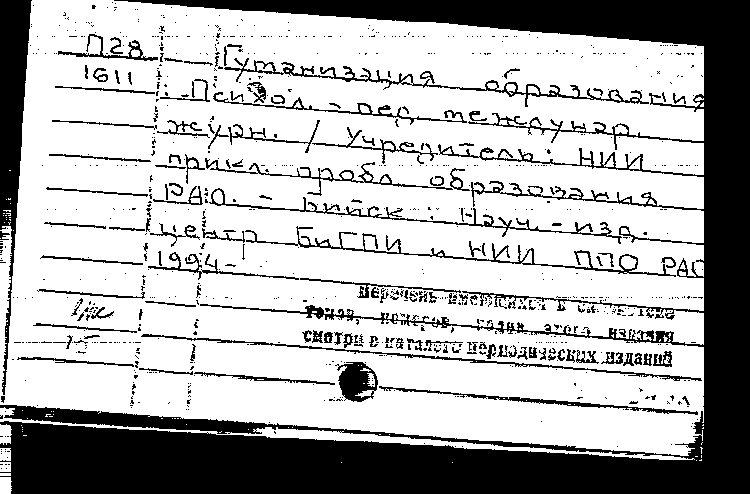 П28
1611
Гуманизация образования
: Психол. - пед. междунар.
журн. / Учредитель: НИИ
прикл. пробл. образования
РАО. - Бийск : Науч. - изд.
центр БиГПИ и НИИ ППО РАО
1994 -
Перечень имеющихся в библиотеке
томов, номеров, годов этого издания
смотри в каталоге периодических изданий
15